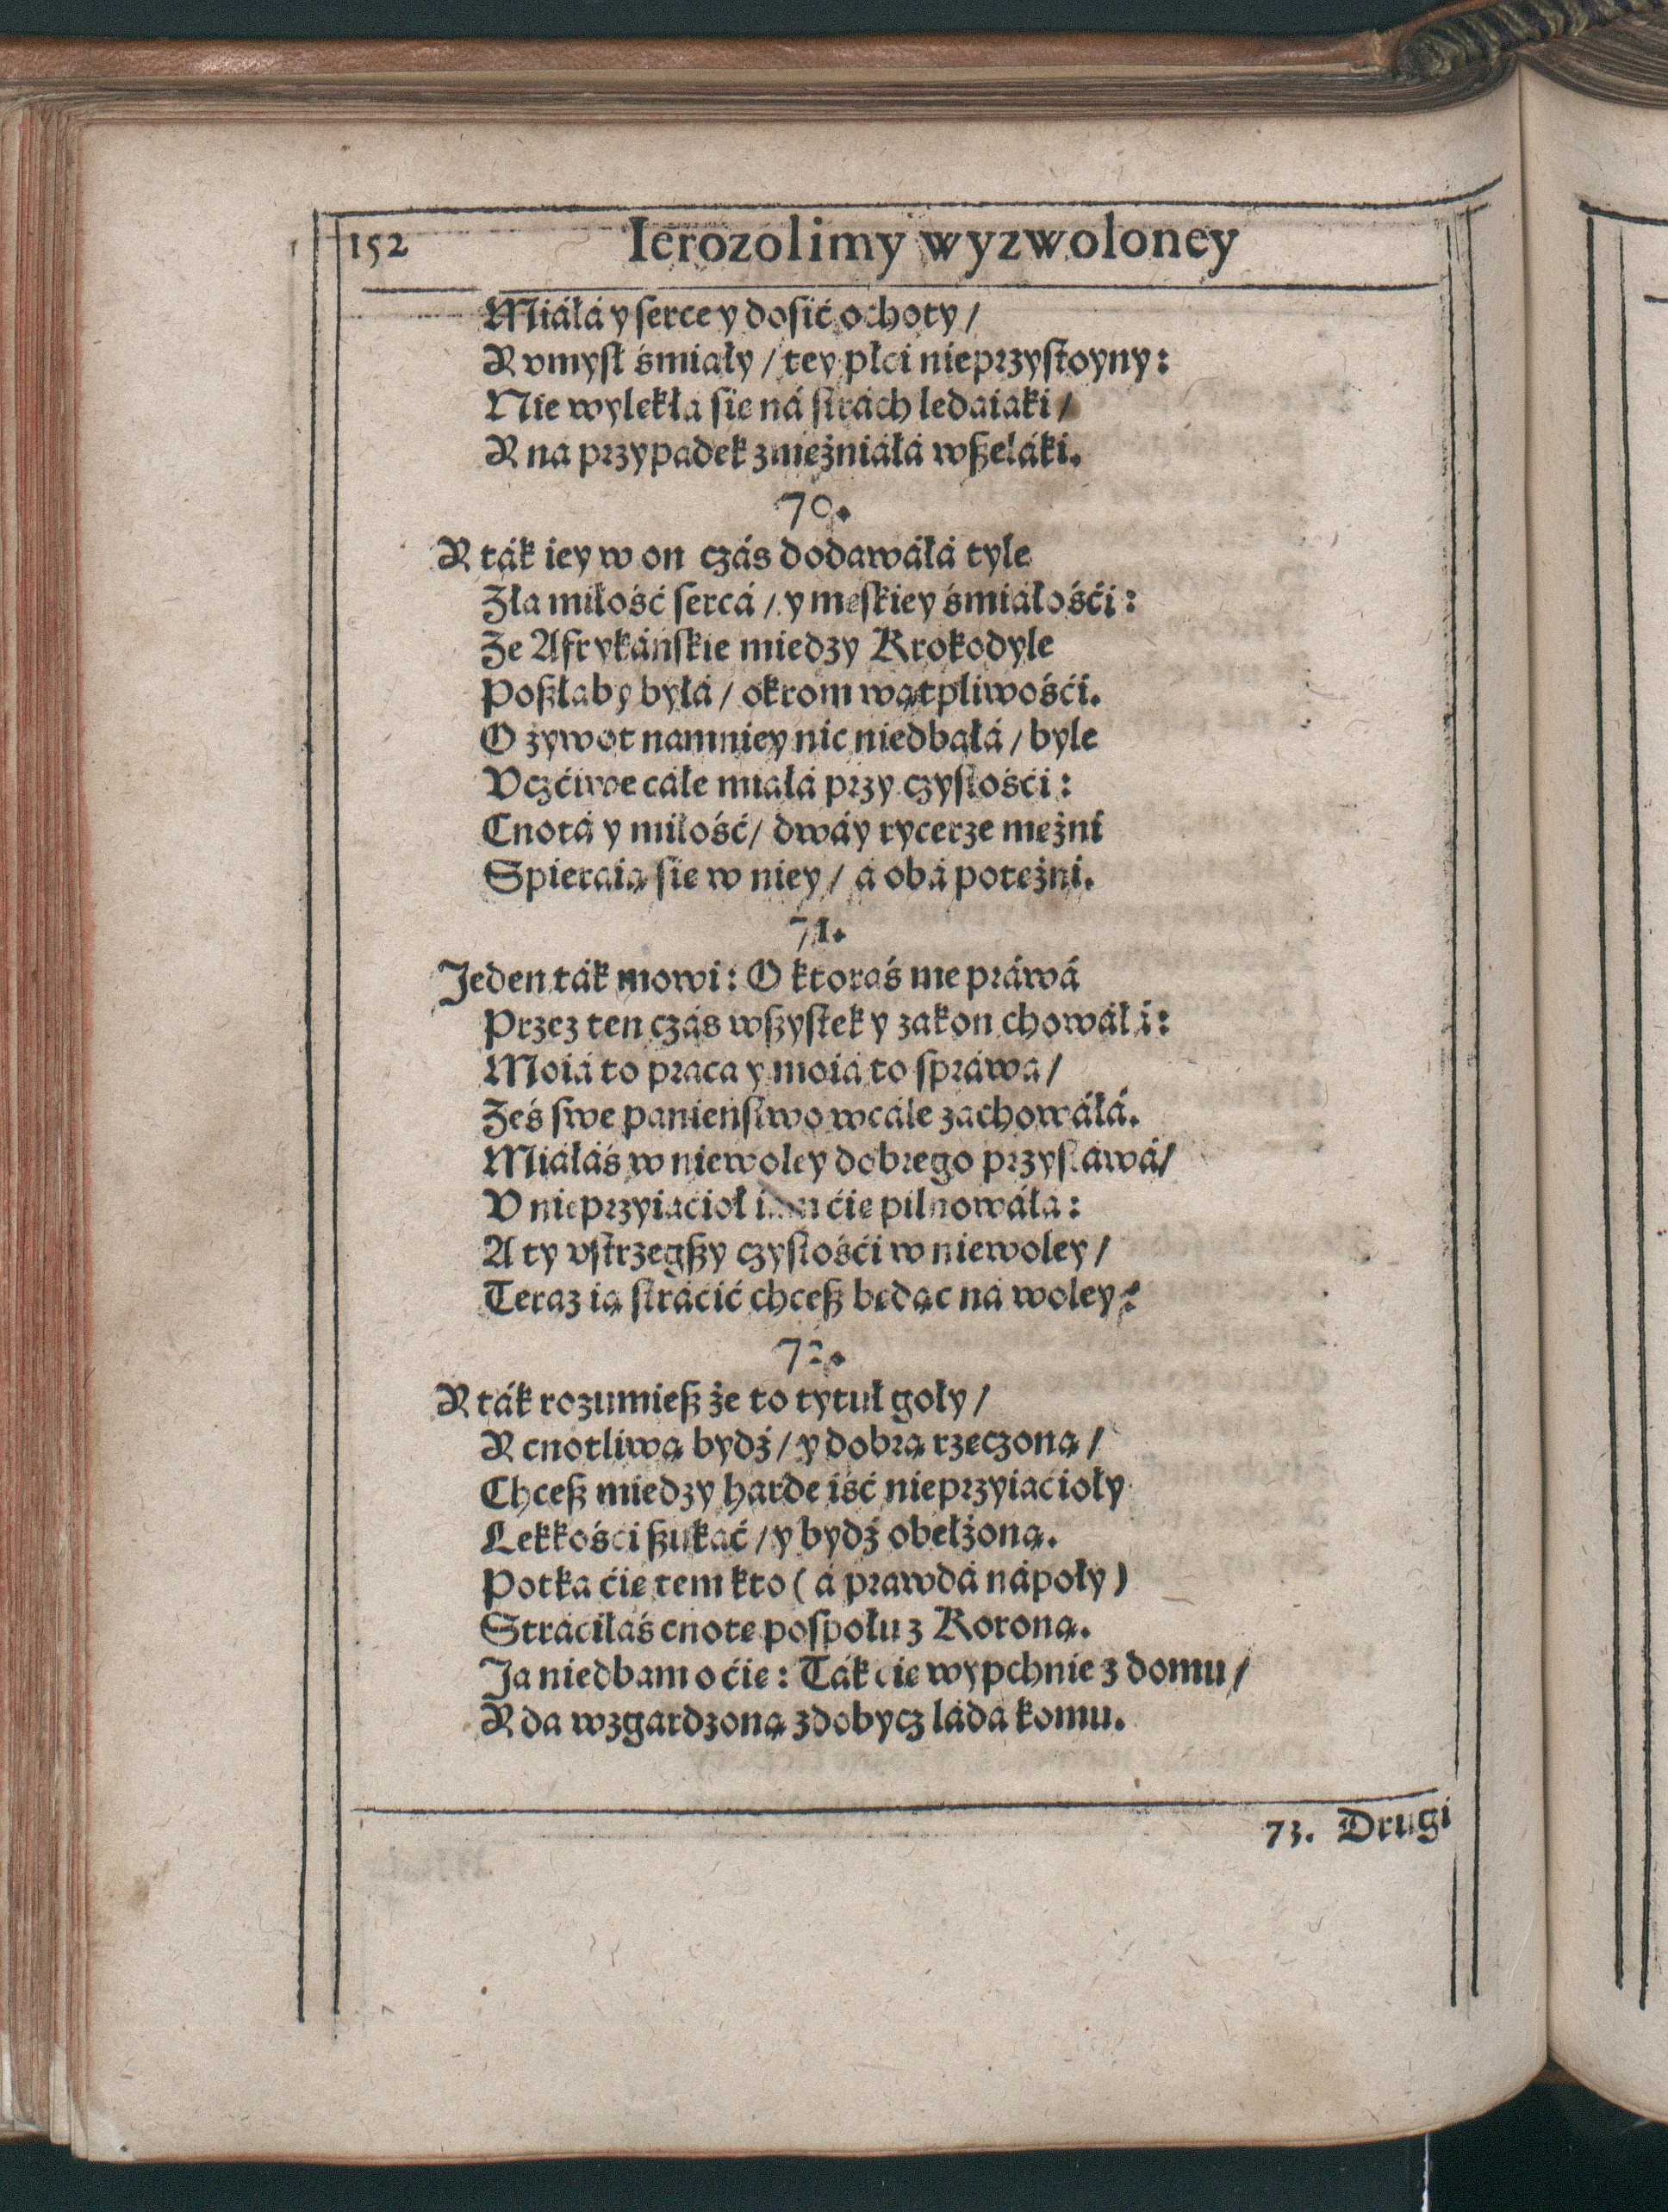 152 Ierozolimy wyzwoloney
Miáłá y ſerce y doſić ochoty /
Y vmyſł śmiały / tey płci nieprzyſtoyny:
Nie wylekła ſie ná ſtrách ledaiaki /
Y na przypadek zmężniáłá wßeláki.
70.
Y ták iey w on czás dodawáłá tyle
Zła miłość ſercá / y męſkiey śmiáłośći:
Że Afrykáńſkie miedzy Krokodyle
Poßłaby byłá / okrom wątpliwośći.
O żywot namniey nic niedbałá / byle
Vczćiwe cáłe miałá przy czyſtośći:
Cnotá y miłość / dwáy rycerze mężni
Spieraią ſie w niey / á obá potężni.
71.
Jeden ták mowi: O ktoraś me práwá
Przez ten czás wßyſtek y zakon chowáłá:
Moiá to praca y moiá to ſpráwa /
Żeś ſwe panieńſtwo wcále záchowáłá.
Miáłáś w niewoley dobrego przyſtáwá /
V nieprzyiaćioł ćie pilnowáła:
A ty vſtrzegßy czyſtośći w niewoley /
Teraz ią ſtráćić chceß będąc ná woley:
72.
Y ták rozumieß że to tytuł goły /
Y cnotliwą bydź / y dobrą rzeczoną /
Chceß miedzy harde iść nieprzyiaćioły
Lekkośći ßukáć / y bydź obelżoną.
Potka ćię tem kto ( á prawdá nápoły )
Stráćiłáś cnotę poſpołu z Koroną.
Ja niedbam o ćię: Ták ćię wypchnie z domu /
Y da wzgardzoną zdobycz láda komu.
73. Drugi